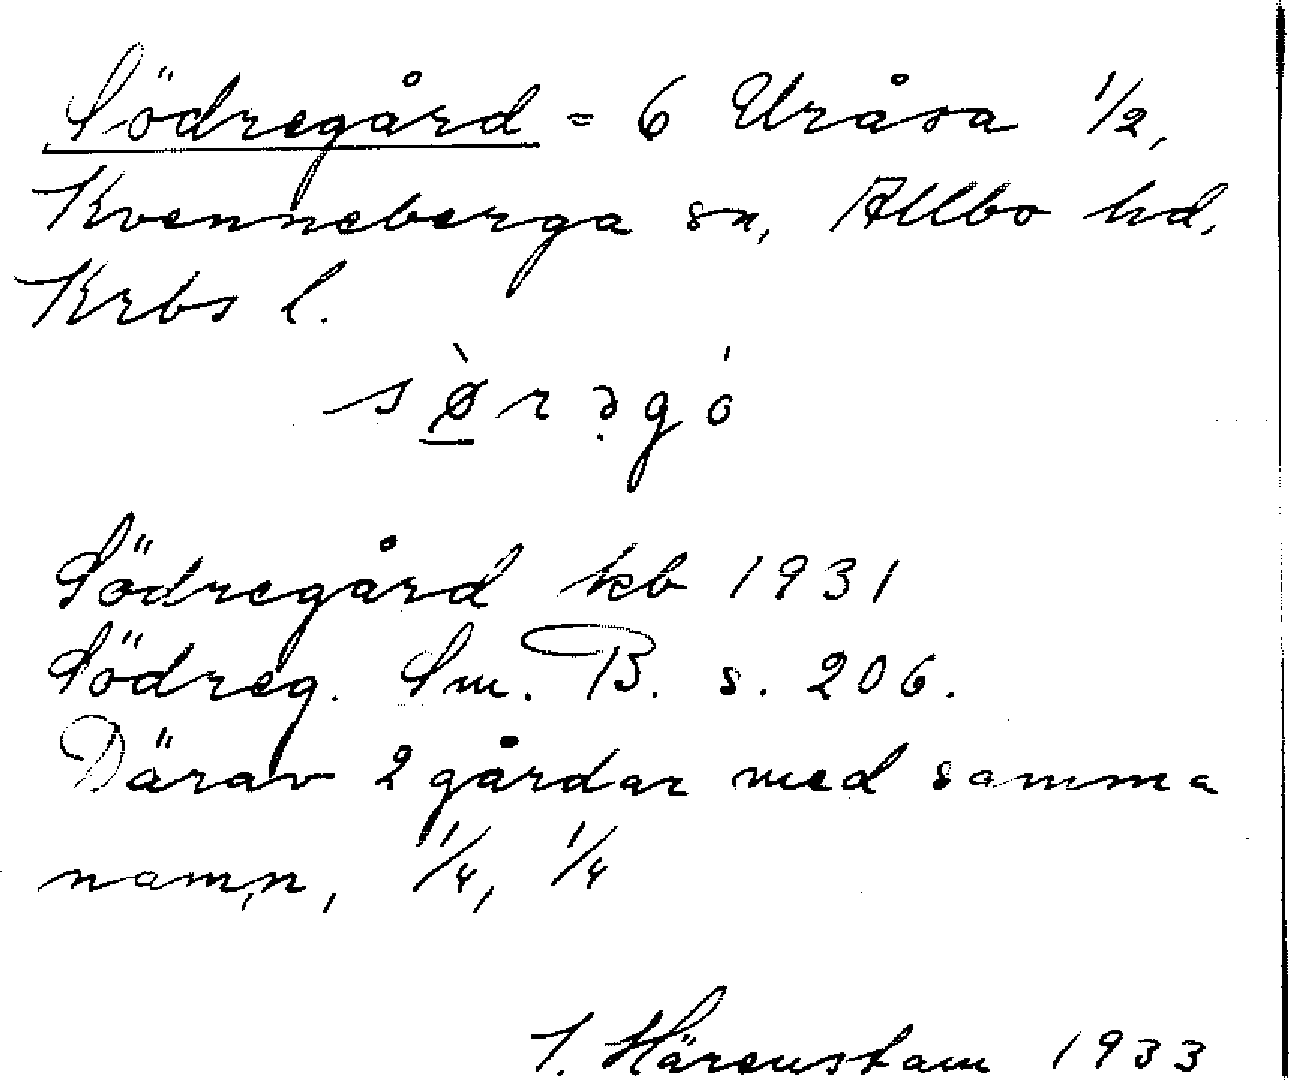 Södregård = 6 Uråsa 1/2,
Kvenneberga sn, Allbo hd,
Krbs l.
sø̀rəgó
Södregård kb 1931
Södreg. Sm. B. s. 206.
Därav 2 gårdar med samma
namn, 1/4, 1/4
I. Härenstam 1933